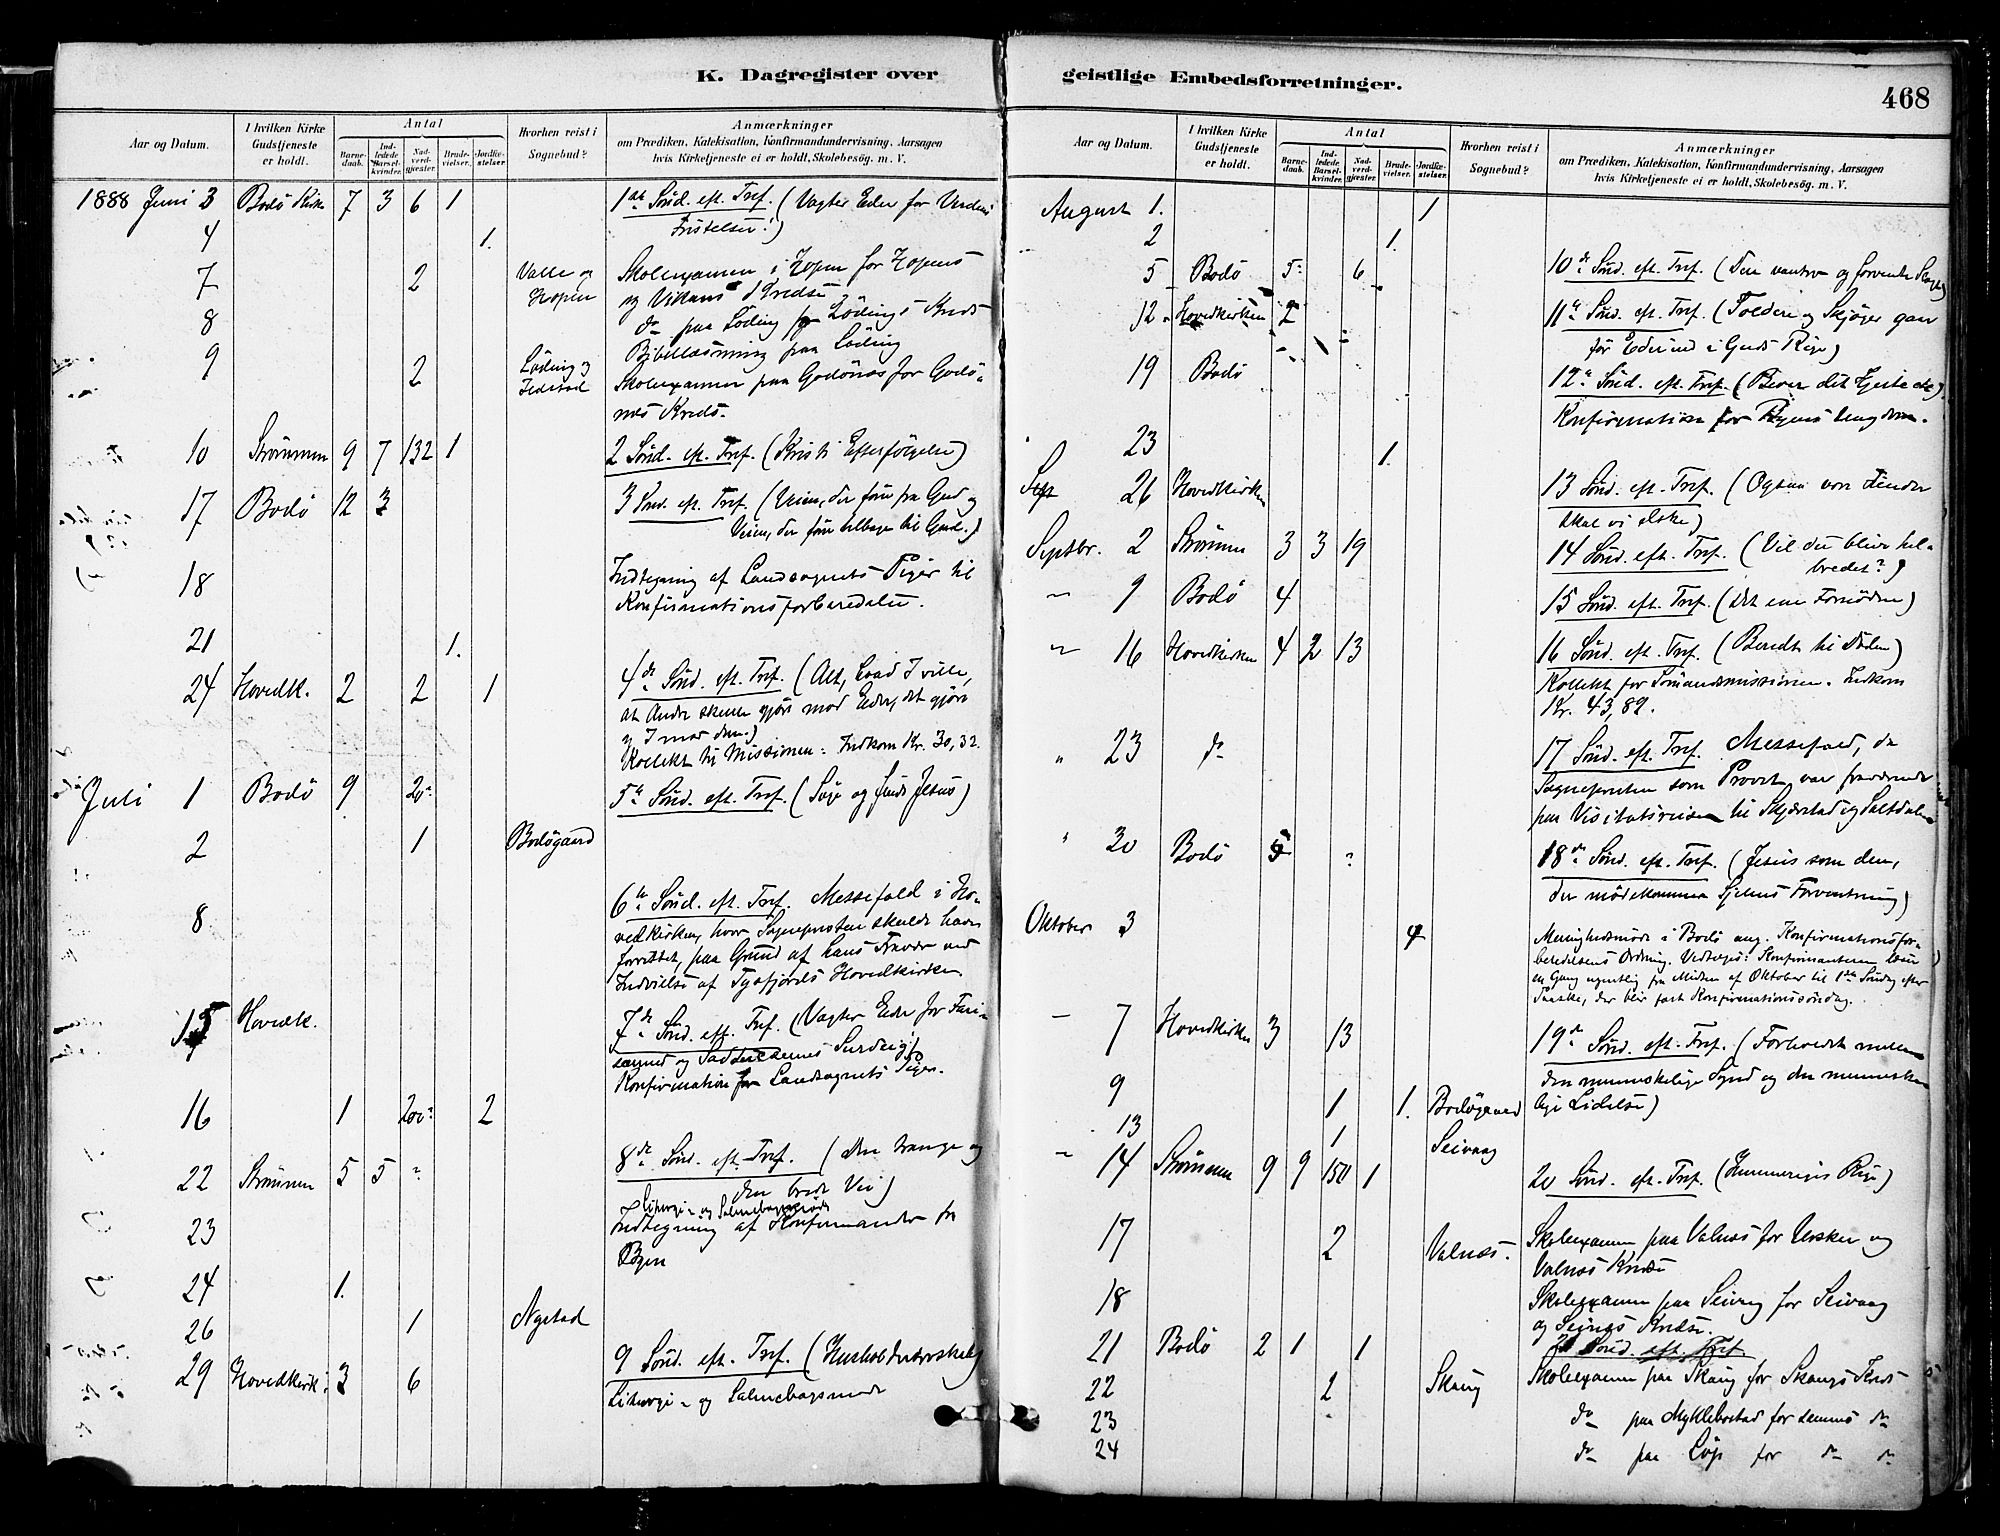 K. Dagregister over
Aar og Datum.
I hvilken Kirke Gudstjeneste er holdt.
Antal
Barnedaab.
Indledede Barselkvinder.
Nadverdgjæster.
Brudevielser.
Jordfæstelser
Hvorhen reist i Sognebud?
Anmærkninger
om Prædiken, Katekisation, Konfirmandundervisning, Aarsagen
hvis Kirketjeneste ei er holdt, Skolebesøg. m. V.
1888 Juni 3 Bodö Kirke 7 3 6 1 1ste Sönd. eft. Tref. (Vagter Eder for Verdens
Fristelser!)
4 1.
7 2 Valle og Hopen Skolexamen i Hopen for Hopens
og Vikans Kredse
8 do paa Löding for Lödings Kreds
Bibellæsning paa Löding
9 2 Löding og Skolexamen paa Godönes for Godö-
nes Kreds.
10 Strömmen 9 7 132 1 2 Sönd. eft. Tref. (Kristi Efterfölgelse)
17 Bodö 12 3 3 Sönd. eft. Tref. (Veien, der före fra Gud og
Veien, der före tilbage til Gud.)
18 Indtegning af Landsognets Piger til
Konfirmationsforberedelse.
21 1.
24 Hovedk. 2 2 1 4de Sönd. eft. Tref. (Alt, hvad I ville,
at Andre skulle gjöre mod Eder, det gjöre
og I mod dem.)
Kollekt til Missionen. Indkom Kr. 30,32.
Juli 1 Bodö 9 20 5te Sönd. eft. Tref. (Söge og finde Jesus)
2 1 Bodögaard
8 6te Sönd. eft. Tref. Messefald i Ho-
vedkirken, hvor Sognepresten skulde have
forrettet, paa Grund af hans Fravær ved
Indvielse af Tysfjords Hovedkirke.
15 Hovedk. 7de Sönd. eft. Tref. (Vagter Eder for Fari-
sæernes og Sadducæernes Surdeig)
Konfirmation for Landsognets Piger.
16 1 200 2
22 Strömmen 5 5 8de Sönd. eft. Tref. (Den trange og
den brede Vei)
Liturgi- og Salmebogsmöde
23 Indtegning af Konfirmander fra
Byen
24 1.
26 1 Nystad
29 Hovedkirk. 3 6 9 Sönd. eft. Tref. (Husholderskab)
Liturgi- og Salmebogsmöde
geistlige Embedsforretninger.
468
Aar og Datum.
I hvilken Kirke Gudstjeneste er holdt.
Antal
Barnedaab.
Indledede Barselkvinder.
Nadverdgjæster.
Brudevielser.
Jordfæstelser.
Hvorhen reist i Sognebud?
Anmærkninger
om Prædiken, Katekisation, Konfirmandundervisning, Aarsagen
hvis Kirketjeneste ei er holdt, Skolebesøg. m. V.
August 1. 1
2 1.
5 Bodö 5 6 10de Sönd. eft. Tref. (Den vantro og forvendte Slægt)
12 Hovedkirken 11te Sönd. eft. Tref. (Toldere og Skjöger gaar
för Eder ind i Guds Rige)
19 Bodö 12te Sönd. eft. Tref.
Konfirmation for Byens Ungdom.
23 1.
Sept 26 Hovedkirken 13 Sönd. eft. Tref. (Ogsaa vore Fiender
skal vi elske)
Septbr. 2 Strömmen 3 3 19 14 Sönd. eft. Tref. (Vil du blive hel-
bredet?)
" 9 Bodö 4 15 Sönd. eft. Tref. (Det ene Fornödne)
" 16 Hovedkirken 4 2 13 16 Sönd. eft. Tref. (Beredt til Döden)
Kollekt for Sömandsmissionen. Indkom
Kr. 43,82.
" 23 do 17 Sönd. eft. Tref. Messefald, da
Sognepresten som Provst var fraværende
paa Visitatsreise til Skjerstad og Saltdalen
" 30 Bodö 5 18de Sönd. eft. Tref. (Jesus som den,
der imödekommer Sjelens Forventning)
Oktober 3 Menighedsmöde i Bodö ang. Konfirmationsfor-
beredelsens Ordning. Vedtoges: Konfirmanterne læse
en Gang ugentlig fra Midten af Oktober til 1ste Söndag efter
Paaske, der blir fast Konfirmationssöndag.
7 Hovedkirken 3 13 19de Sönd. eft. Tref. (Forholdet mellem
den menneskelige Synd og den menneske-
lige Lidelse)
9 1 1. Bodögaard
13 1 Seivaag
14 Strömmen 9 9 150 1 20 Sönd. eft. Tref. (Himmeriges Rige)
17 2 Valnæs. Skolexamen paa Valnæs for og
Valnæs Kredse
18 Skolexamen paa Seivaag for Seivaag
og Seines Kredse.
21 Bodö 2 1 1 21 Sönd. eft. Tref.
22 2 Skaug Skolexamen paa Skaug for Skaugs Kreds
23 do paa Myklebostad for do
24 do paa Löp for do do